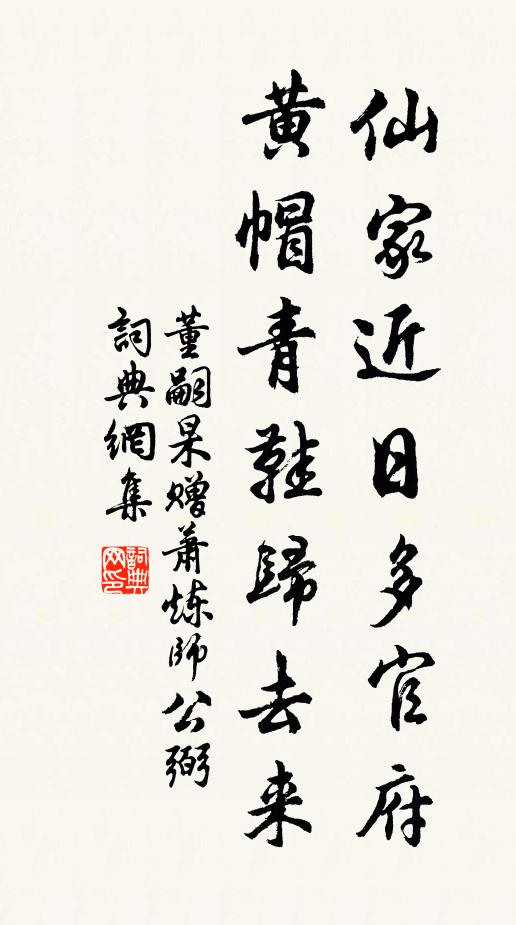 仙家近日多官府
黄帽青鞋歸去来
董嗣杲贈蕭炼師公弼
詞典網集
詞典网印